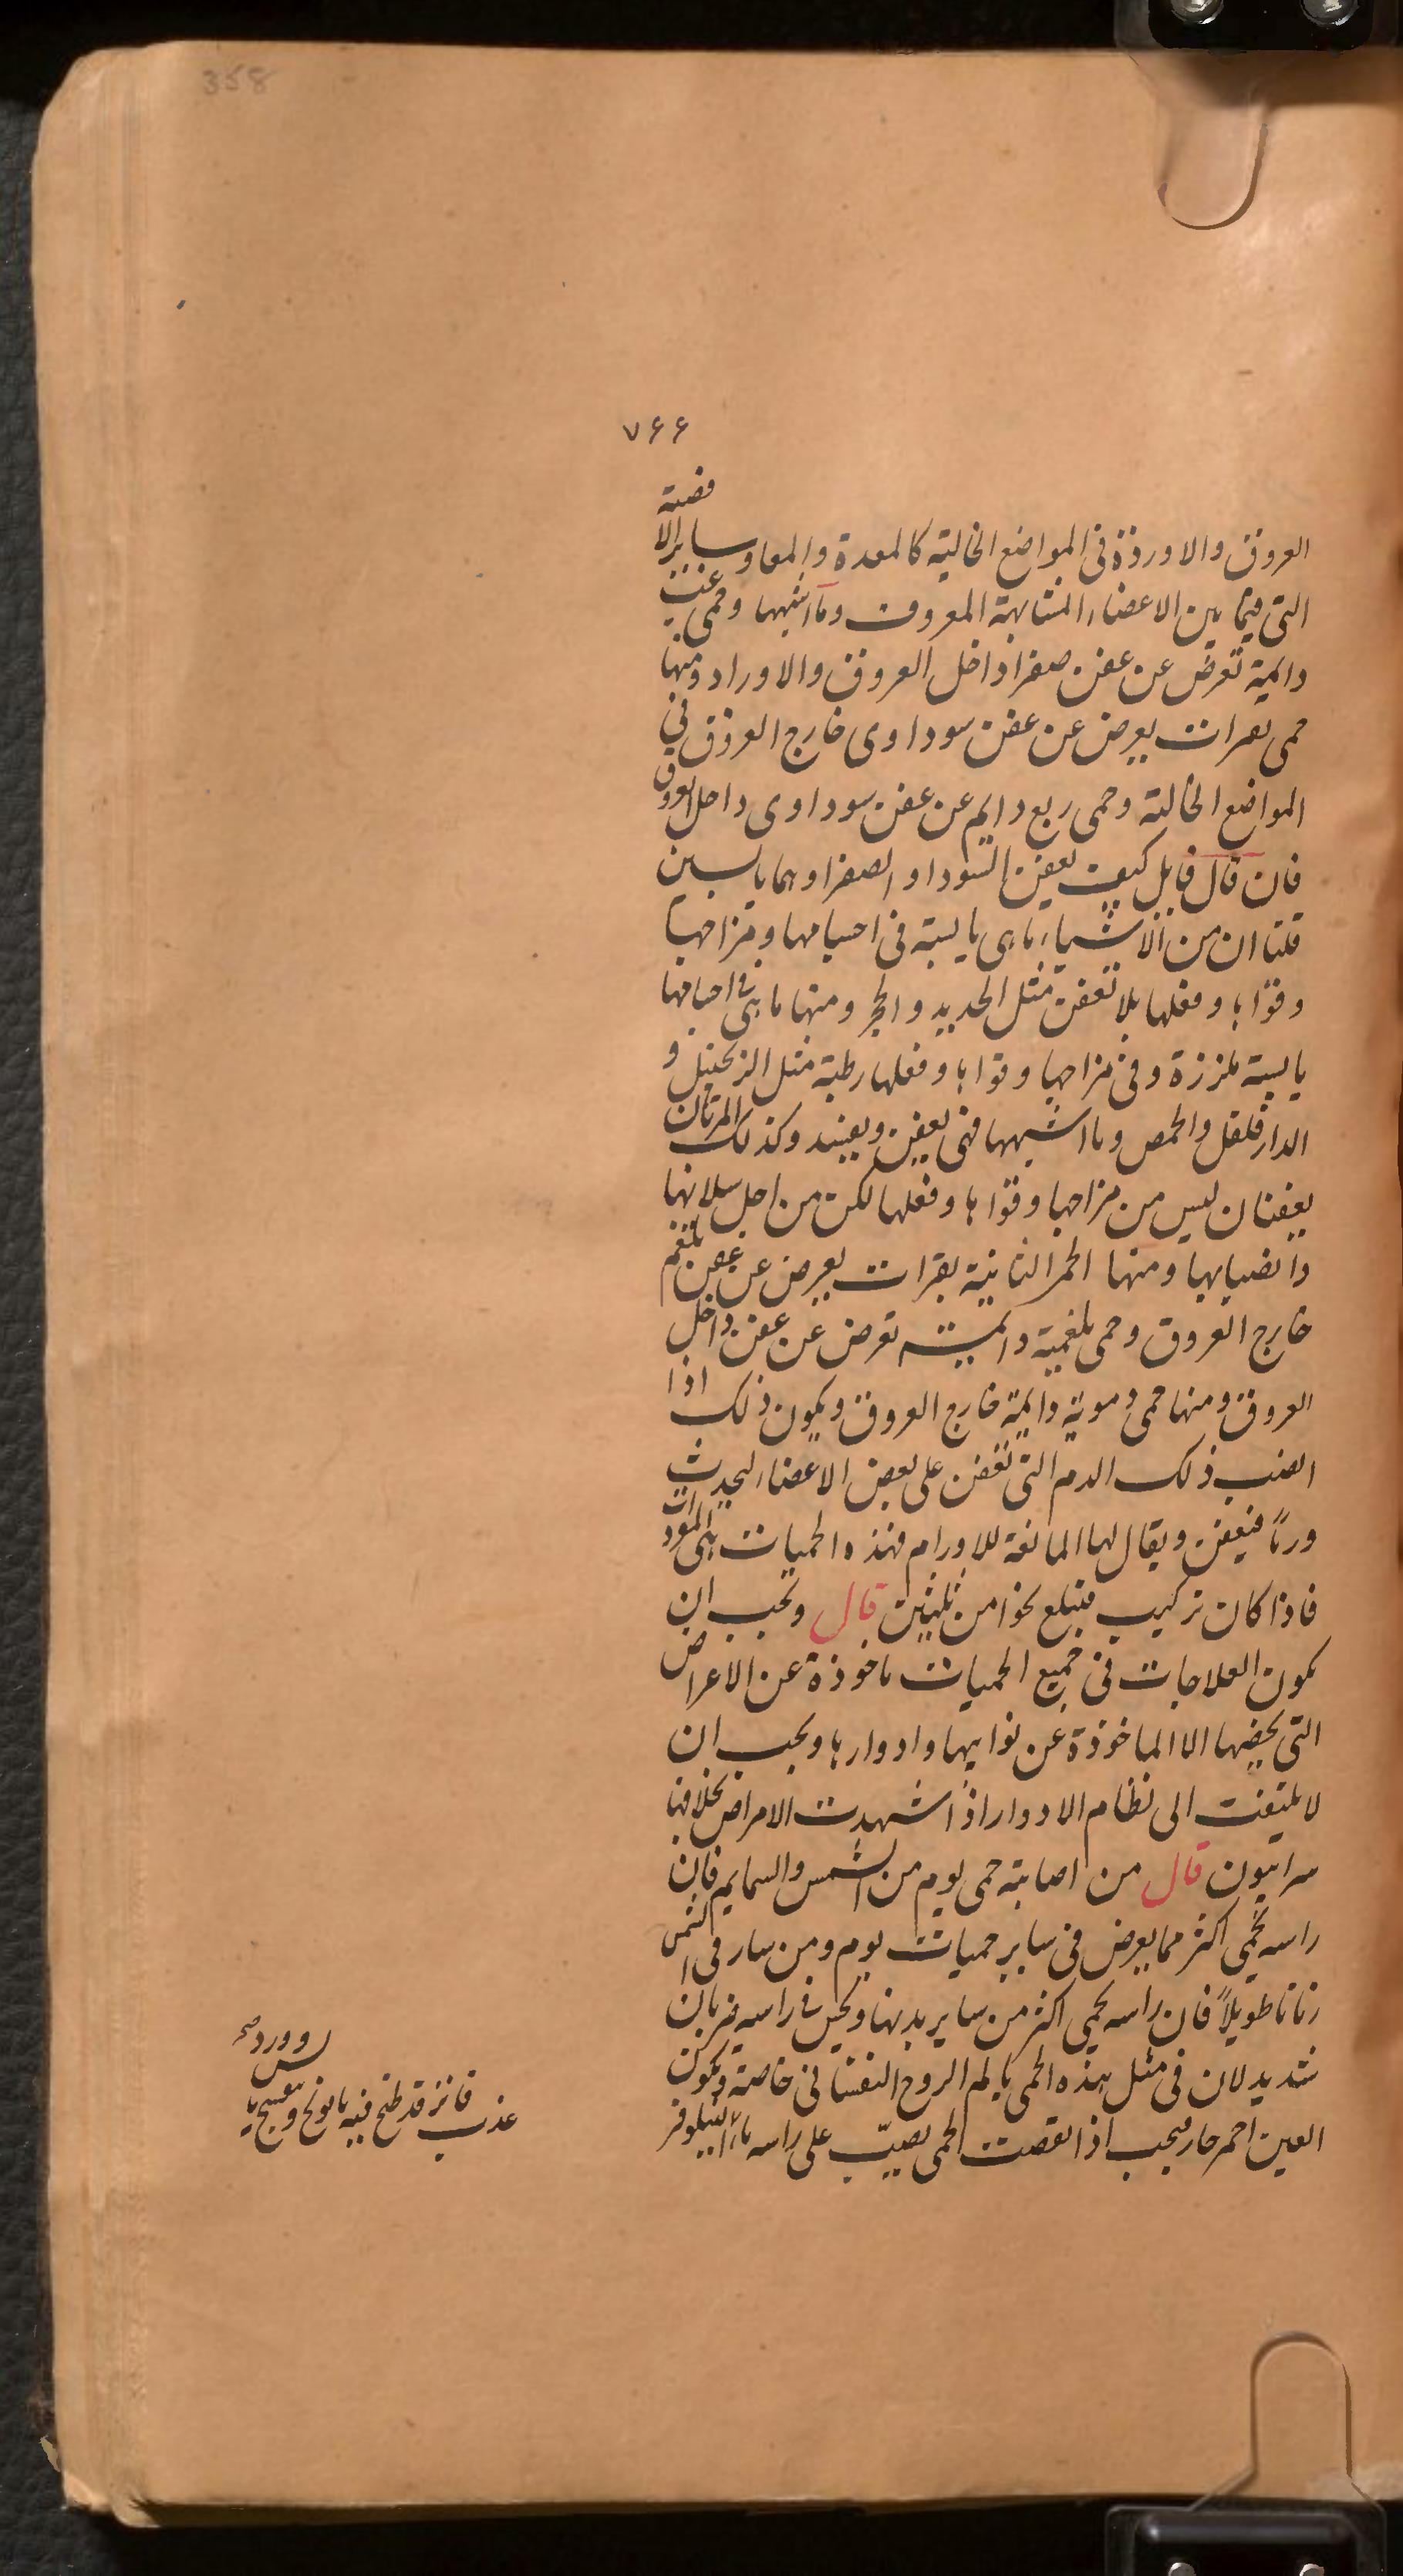 358
٧۶۶
العروق والاوردة فى المواضع الخالية كالمعدة والمعا وسايرالا فضية
التى فيما بين الاعضاء المتشابهة المعروف وما اشبهها وحمى غب
دايمة تعرض عن عفن صفرا داخل العروق والاوراد ومنها
حمى بفترات يعرض عن عفن سوداوى خارج العروق فى
المواضع الخالية وحمى ربع دايم عن عفن سوداوى داخل العروق
فان قال قايل كيف يعفن السودا و الصفرا وهما يابسين
قلنا ان من الاشياء ماهى يابسة فى اجسامها ومزاجها
وقواها وفعلها بلا تعفن مثل الحديد والحجر ومنها ما هى فى اجسامها
يابسة ملززة وفى مزاجها وقواها وفعلها رطبة مثل الزنجبيل و
الدارفلفل والحمص وما اشبهها فهى يعفن ويفسد وكذلك المرتان
يعفنان ليس من مزاجها وقواها وفعلها لكن من اجل سيلانها
وانصبابها ومنها الحمى النائبة بفترات يعرض عن عفن بلغم
خارج العروق وحمى بلغمية دايمة تعرض عن عفن داخل
العروق ومنها حمى دموية دايمة خارج العروق ويكون ذلك اذا
انصب ذلك الدم التى تعفن على بعض الاعضاء ليحدث
ورماً فيعفن ويقال لها المانعة للاورام فهذه الحميات هى المفردات
فاذا كان تركيب فتبلغ نحوا من ثلثين قال ويجب ان
يكون العلاجات فى جميع الحميات ماخوذة عن الاعراض
التى يخصها لا الماخوذة عن نوايبها وادوارها ويجب ان
لا يلتفت الى نظام الادوار اذا شهدت الامراض بخلافها
سرابيون قال من اصابته حمى يوم من الشمس والسمايم فان
راسه يحمى اكثر مما يعرض فى ساير حميات يوم ومن سار فى الشمس
زمانا طويلاً فان راسه يحمى اكثر من ساير بدنها ويحس فى راسه ضربان
شديد لان فى مثل هذه الحمى يالم الروح النفسانى خاصة ويكون
العين احمر حار فيجب اذا نقصت الحمى يصبّ على راسه ماء النيلوفر
وورد
فاتر قد طبخ فيه بابونج وبنفسج يابس
عذب